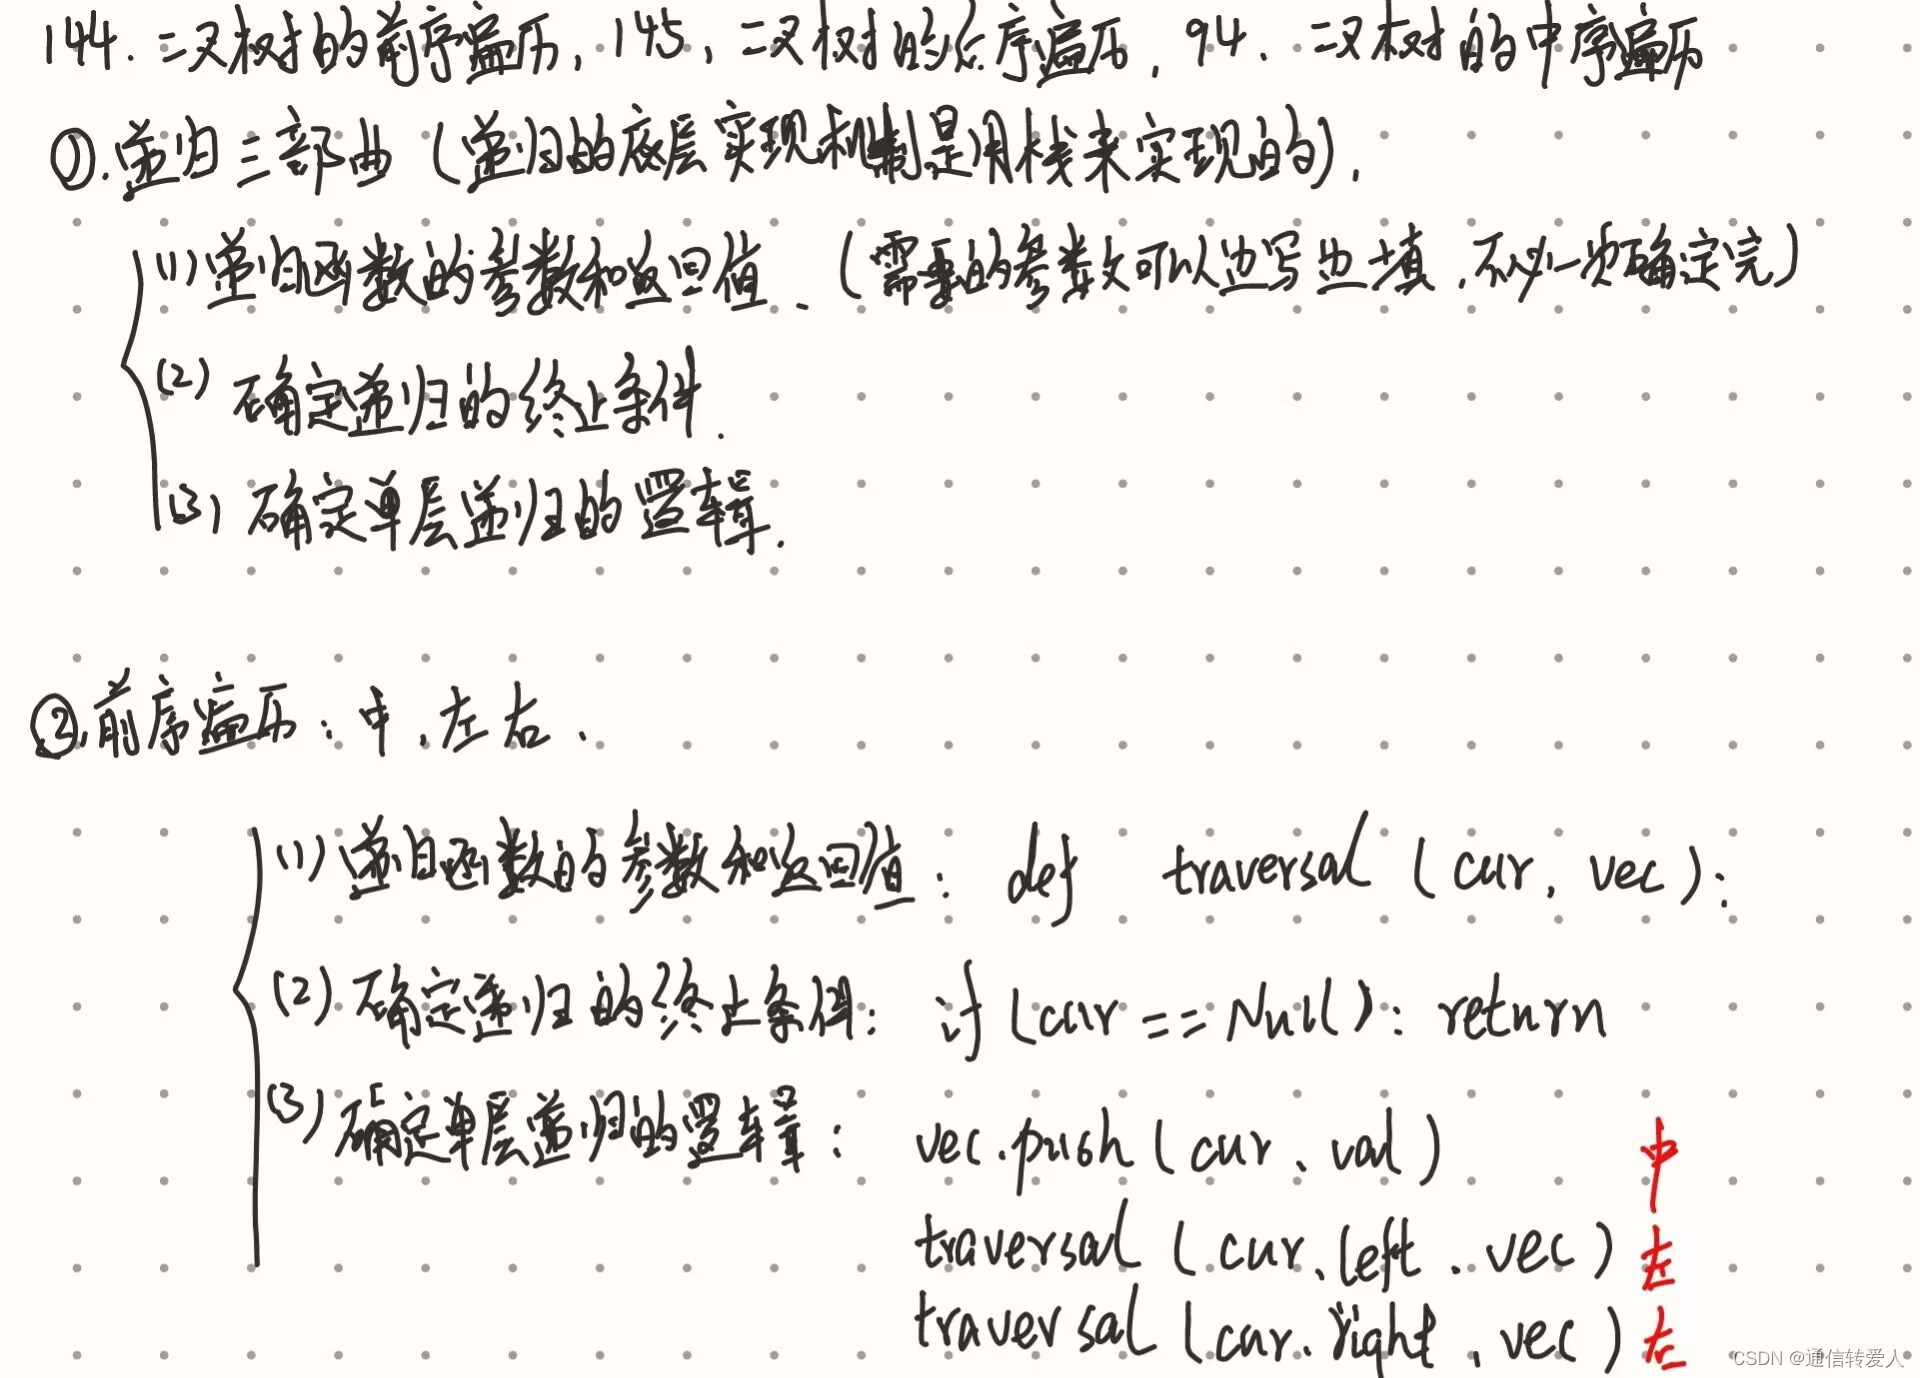 144. 二叉树的前序遍历, 145, 二叉树的后序遍历, 94. 二叉树的中序遍历
①. 递归三部曲 (递归的底层实现机制是用栈来实现的).
(1) 递归函数的参数和返回值. (需要的参数可以边写边填, 不必一次确定完)
(2) 确定递归的终止条件.
(3) 确定单层递归的逻辑.
②. 前序遍历: 中, 左右.
(1) 递归函数的参数和返回值: def traversal (cur, vec):
(2) 确定递归的终止条件: if (cur == Null): return
(3) 确定单层递归的逻辑: vec.push (cur.val) 中
traversal (cur.left, vec) 左
traversal (cur.right, vec) 右
CSDN @通信转爱人